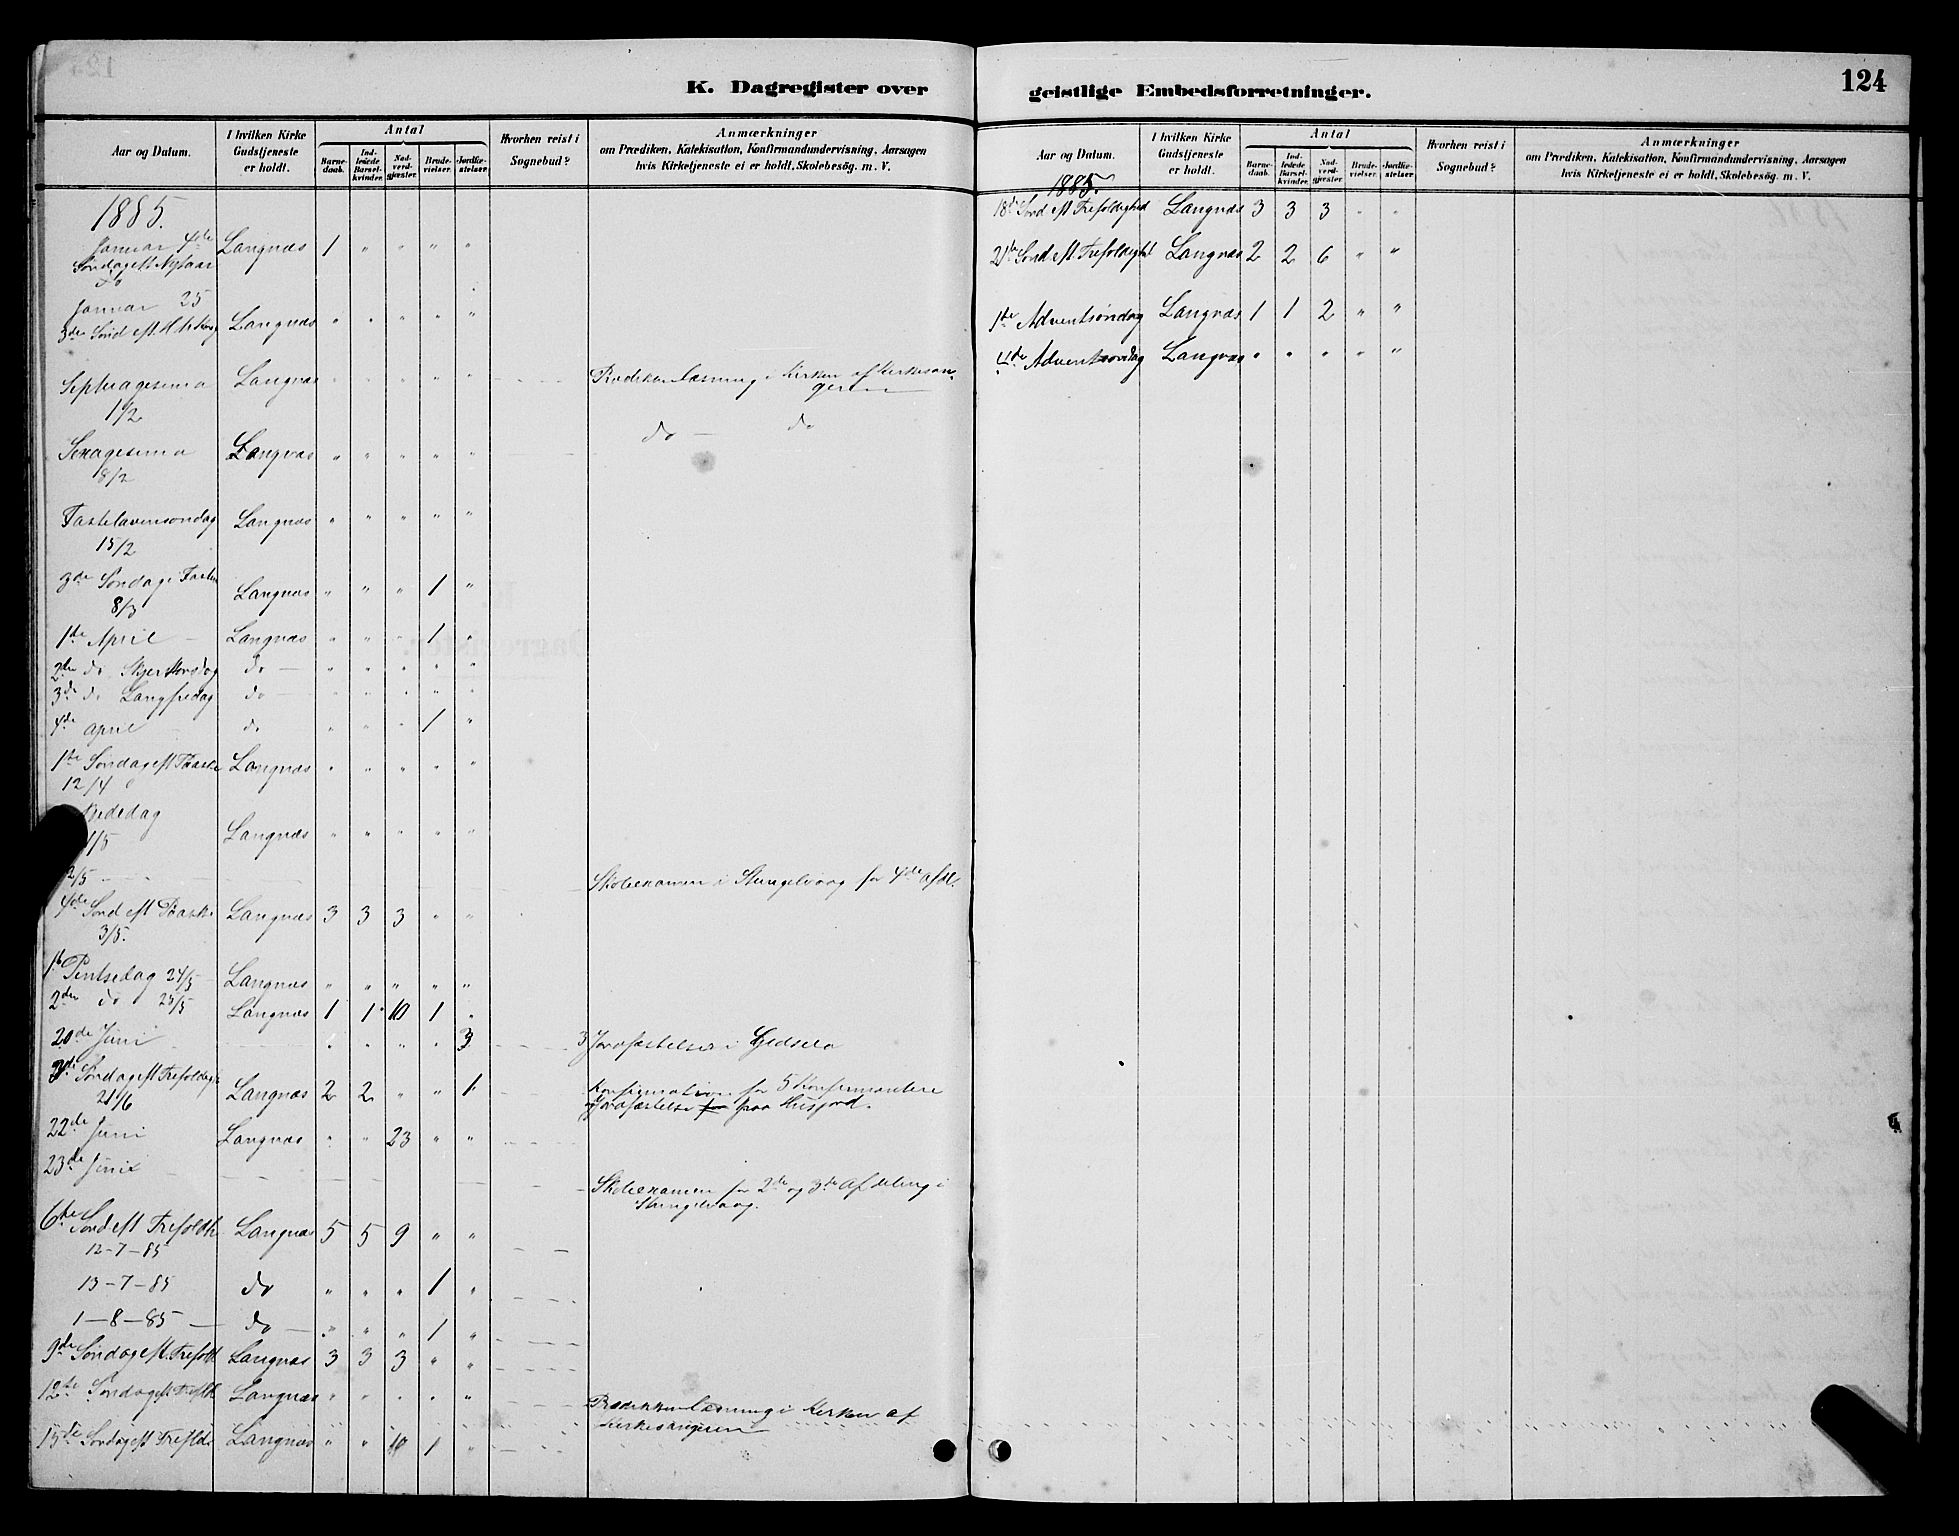 K. Dagregister over
Aar og Datum.
I hvilken Kirke Gudstjeneste er holdt.
Antal
Barne-daab.
Ind-ledede Barsel-kvinder.
Nad-verd-gjæster.
Brude-vielser.
Jordfæ-stelser.
Hvorhen reist i Sognebud?
Anmærkninger
om Prædiken, Katekisation, Konfirmandundervisning, Aarsagen
hvis Kirketjeneste ei er holdt, Skolebesög. m. V.
1885.
Januar 4de Langnæs 1 " " " "
Søndag eft Nytaar
Januar 25
3de Sønd eft. Langnæs " " " " "
Septuagesima Langnæs " " " " " Prædikenlæsning i Kirken af Kirkesan-
1/2 geren
do — do
Sexagesima Langnæs " " " " "
8/2
Fastelavensøndag Langnæs " " " " "
15/2
3de Søndag i Fasten Langnæs " " " 1 "
8/3
1te April Langnæs " " " 1 "
2den do Skjertorsdag do " " " " "
3de do Langfredag do " " " " "
4de april do " " " 1 "
1te Søndag eft Paaske Langnæs " " " " "
12/4
Bededag
1/5 Langnæs " " " " "
2/5 Skoleexamen i for 4de afdl.
4de Sønd eft Paaske Langnæs 3 3 3 " "
3/5.
1te Pintsedag 24/5 Langnæs " " " " "
2den do 25/5 Langnæs 1 1 10 1 "
20de Juni " " " " 3 3 Jordfæstelser i
3de Søndag eft Trefoldigh Langnæs 2 2 " " 1 Konfirmation for 5 Konfirmantere
21/6 og Jordfæstelse for paa Husjord.
22de Juni Langnæs " " 23 " "
23de Juni Skoleexamen for 2de og 3de Afdeling i
6te Sønd eft Trefoldh Langnæs 5 5 9 " "
12-7-85
13-7-85 do " " " 1 "
1-8-85 do " " " 1 "
9de Søndag eft. Trefold Langnæs 3 3 3 " "
12te Søndag eft Trefth Langnæs " " " " " Prædikkenlæsning i Kirken af
Kirkesangeren
15de Søndag eft Trefldi Langnæs " " 10 1 "
geistlige Embedsforretninger.
124
Aar og Datum.
I hvilken Kirke Gudstjeneste er holdt.
Antal
Barne-daab.
Ind-ledede Barsel-kvinder.
Nad-verd-gjæster.
Brude-vielser.
Jordfæ-stelser.
Hvorhen reist i Sognebud?
Anmærkninger
om Prædiken, Katekisation, Konfirmandundervisning, Aarsagen
hvis Kirketjeneste ei er holdt, Skolebesög. m. V.
1885.
18de Sønd eft Trefoldighed Langnæs 3 3 3 " "
21de Sønd eft Trefoldighd Langnæs 2 2 6 " "
1te Adventsøndag Langnæs 1 1 2 " "
4de Adventsøndag Langnæs " " " " "